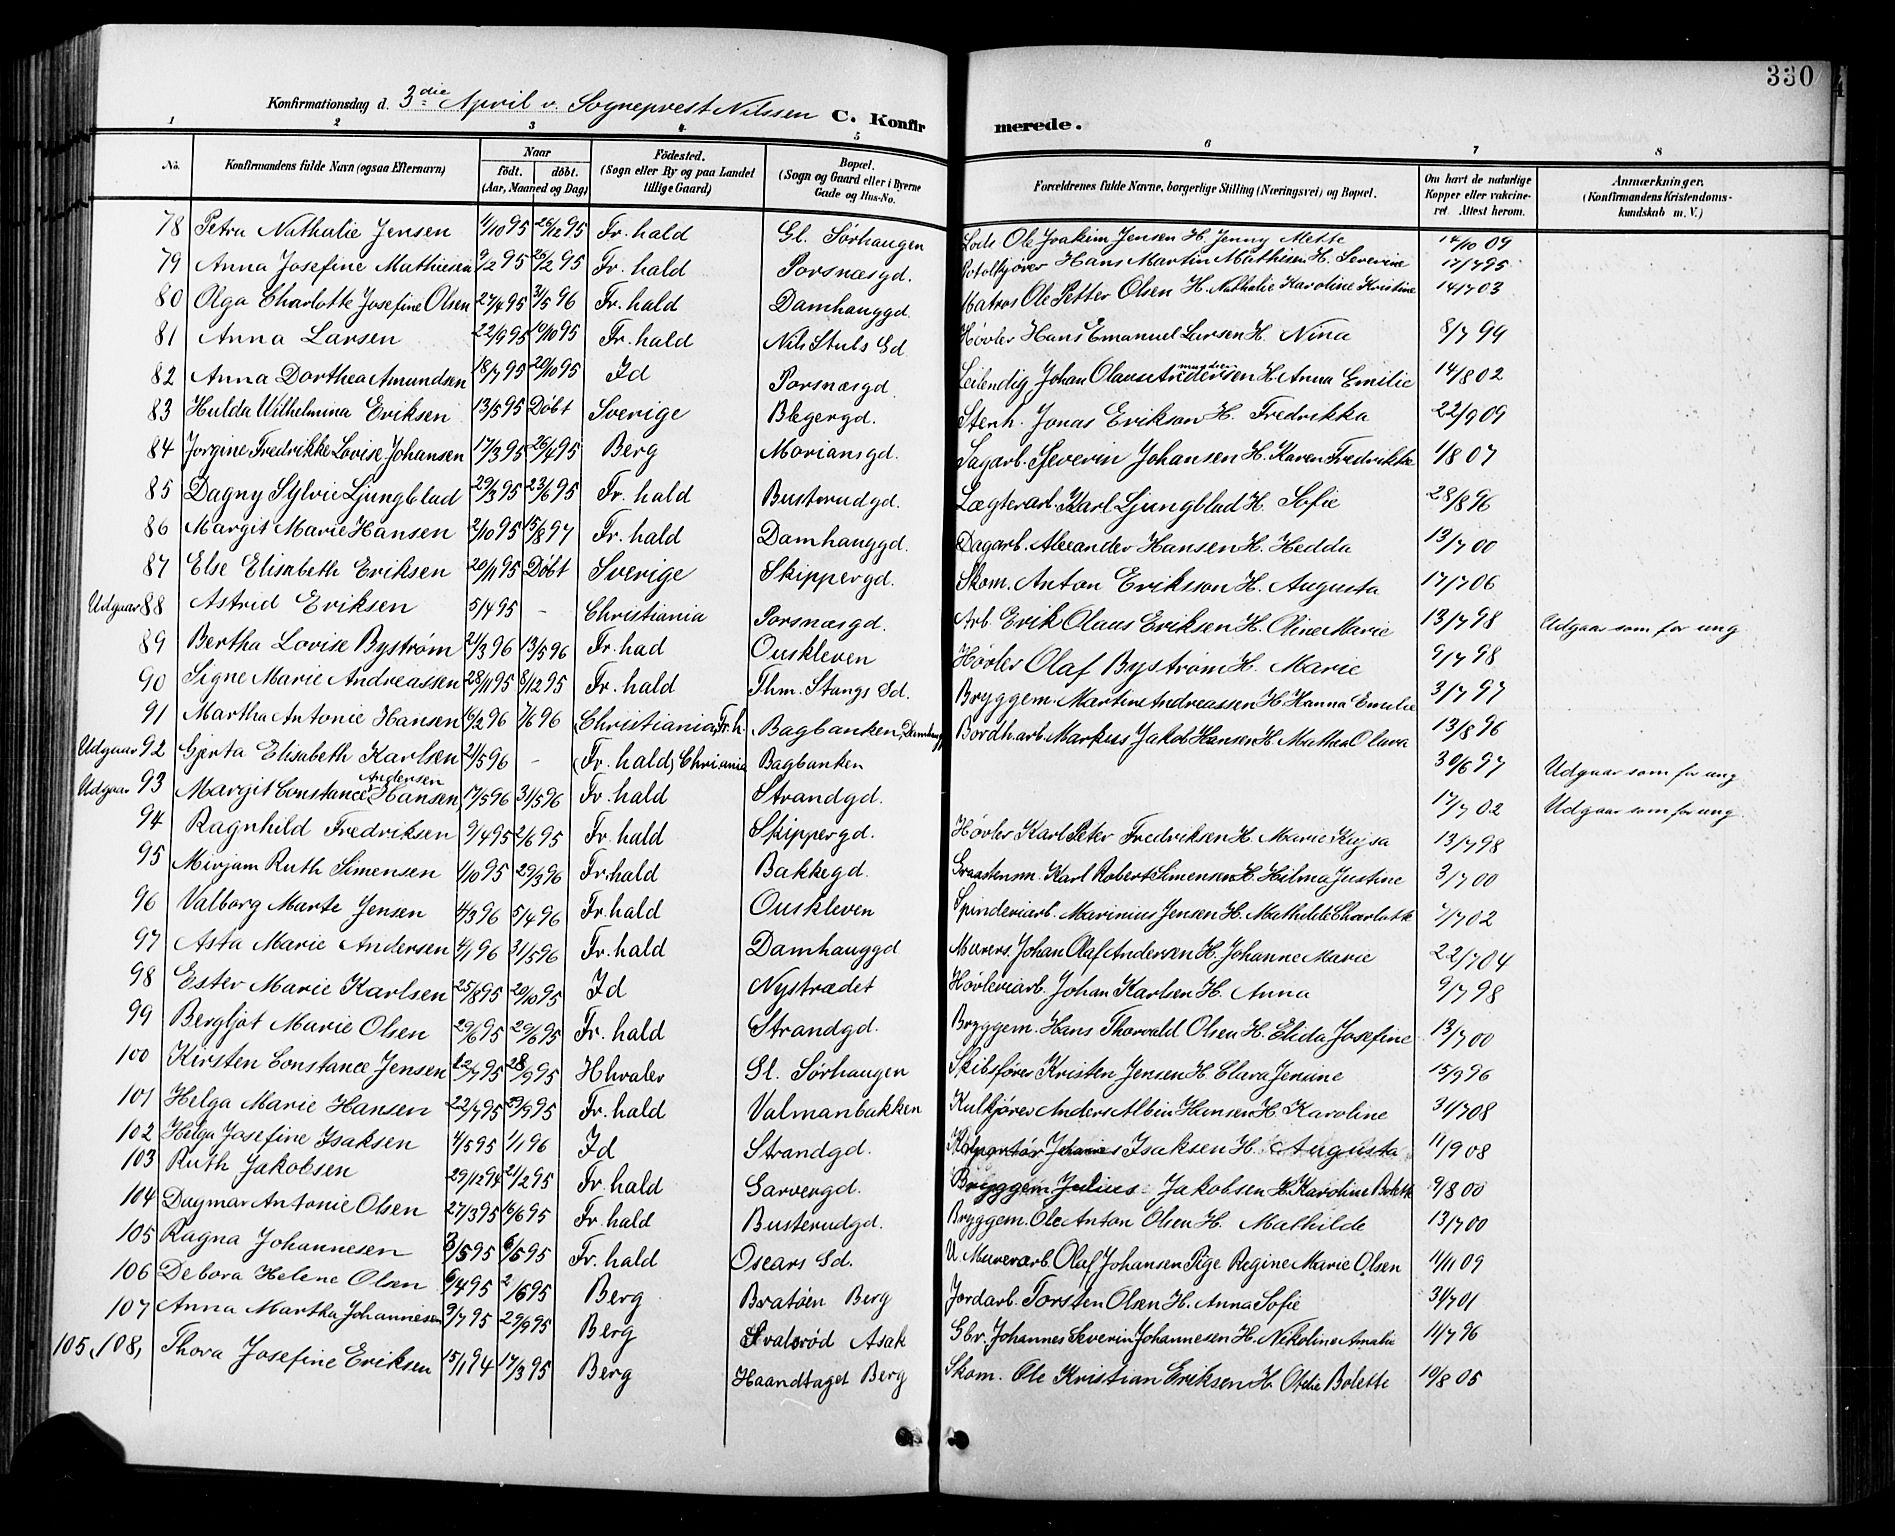 330
Konfirmationsdag d. 3die April v. Sogneprest Nilssen C. Konfirmerede.
1 2 3 4 5 6 7 8
No. Konfirmandens fulde Navn (ogsaa Efternavn) Naar født. døbt. (Aar, Maaned og Dag) Fødested. (Sogn eller By og paa Landet tillige Gaard) Bopæl. (Sogn og Gaard eller i Byerne Gade og Hus-No. Forældrenes fulde Navne, borgerlige Stilling (Næringsvei) og Bopæl. Om havt de naturlige Kopper eller vakcineret. Attest herom. Anmærkninger. (Konfirmandens Kristendomskundskab m. V.)
78 Petra Nathalie Jensen 4/10 95 26/12 95 Fr. hald Gl. Sørhaugen Lods Ole Joakim Jensen H. Jenny Mette 14/10 09
79 Anna Josefine Mathiesen 9/2 95 26/2 95 Fr. hald Porsnæsgd. Hans Martin Mathisen H. Severine 17/7 95
80 Olga Charlotte Josefine Olsen 27/4 95 3/5 96 Fr. hald Damhauggd. Matros Ole Petter Olsen H. Nathalie Karoline Kristine 14/7 03
81 Anna Larsen 22/9 95 19/10 95 Fr. hald Nils Stubs Gd Høvler Hans Emanuel Larsen H. Nina 8/7 99
82 Anna Dorthea Amundsen 18/7 95 20/10 95 Id Porsnæsgd. Leilendig Johan Olaus Andersen H. Anna Emilie 14/8 02
83 Hulda Wilhelmina Eriksen 13/5 95 Døbt Sverige Blegergd. Stenh. Jonas Erikson H. Fredrikka 22/9 09
84 Jorgine Fredrikke Lovise Johansen 17/3 95 26/4 95 Berg Moriansgd. Sagarb. Severin Johansen H. Karen Fredrikke 1/8 07
85 Dagny Sylvie Ljungblad 29/3 95 23/6 95 Fr. hald Busterudgd. Lægterarb. Karl Ljungblad H. Sofie 28/8 96
86 Margit Marie Hansen 2/10 95 15/8 97 Fr. hald Damhauggd. Dagarb. Alexander Hansen H. Hedda 13/7 00
87 Else Elisabeth Eriksen 20/11 95 Døbt Sverige Skippergd. Skom. Anton Erikson H. Augusta 17/7 06
Udgaar 88 Astrid Eriksen 5/4 95 - Christiania Porsnæsgd. Arb. Erik Olaus Eriksen H. Oline Marie 13/7 98 Udgaar som for ung
89 Bertha Lovise Bystrøm 21/3 96 13/5 96 Fr. had Ouskleven Høvler Olaf Bystrøm H. Marie 9/7 98
90 Signe Marie Andreassen 28/11 95 8/12 95 Fr. hald Thm. Stangs Gd. Bryggem. Martin Andreassen H. Hanna Emilie 3/7 97
91 Martha Antonie Hansen 16/2 96 7/6 96 (Christiania) Fr. h. Bagbanken, Damhaug Bordh. arb. Markus Jakob Hansen H. Mathea Olava 13/8 96
Udgaar 92 Gjerta Elisabeth Karlsen 21/5 96 - (Fr. hald) Chriania Bagbanken 30/6 97 Udgaar som for ung
Udgaar 93 Margit Constance Andersen Hansen 17/5 96 31/5 96 Fr. hald Strandgd. 17/7 02 Udgaar som for ung
94 Ragnhild Fredriksen 9/4 95 2/6 95 Fr. hald Skippergd. Høvler Karl Peter Fredriksen H. Marie Kajsa 13/7 98
95 Mirjam Ruth Simensen 1/10 95 29/3 96 Fr. hald Bakkegd. Graastensm. Karl Robert Simensen H. Hilma Justine 3/7 00
96 Valborg Marte Jensen 4/3 96 5/4 96 Fr. hald Ouskleven Spinderiarb. Marinius Jensen H. Mathilde Charlotte 7/7 02
97 Asta Marie Andersen 4/1 96 31/5 96 Fr. hald Damhauggd Murers. Johan Olaf Andersen H. Johanne Marie 22/7 04
98 Ester Marie Karlsen 25/8 95 20/10 95 Id Nystrædet Høvleriarb. Johan Karlsen H. Anna 9/7 98
99 Bergljot Marie Olsen 29/6 95 29/6 95 Fr. hald Strandgd. Bryggem. Hans Thorvald Olsen H. Elida Josefine 13/7 00
100 Kirsten Constance Jensen 12/7 95 28/9 95 Hhvaler Gl. Sørhaugen Skibsfører Kristen Jensen H. Clara Jensine 15/9 96
101 Helga Marie Hansen 22/7 95 29/9 95 Fr. hald Valmanbakken Kulkjører Anders Albin Hansen H. Karoline 31/7 08
102 Helga Josefine Isaksen 4/5 95 1/1 96 Id Strandgd. Isaksen H. Augusta 11/9 08
103 Ruth Jakobsen 29/12 94 21/2 95 Fr. hald Garvergd. Bryggem Julius Jakobsen H. Karoline Bolette 9/8 00
104 Dagmar Antonie Olsen 27/3 95 16/6 95 Fr. hald Busterudgd. Bryggem. Ole Anton Olsen H. Mathilde 13/7 00
105 Ragna Johannesen 3/5 95 6/5 95 Fr. hald Oscars Gd. U Murerarb. Olaf Johansen Pige Regine Marie Olsen 11/11 09
106 Debora Helene Olsen 6/4 95 2/6 95 Berg Bratøen Berg Jordarb. Torsten Olsen H. Anna Sofie 31/7 01
107 Anna Martha Johannesen 9/7 95 29/9 95 Berg Svalerød Asak Gbr. Johannes Severin Johannesen H. Nikoline Amalie 11/7 96
105, 108, Thora Josefine Eriksen 15/1 94 17/3 95 Berg Haandtaget Berg Skom. Ole Kristian Eriksen H. Otelie Bolette 19/8 05